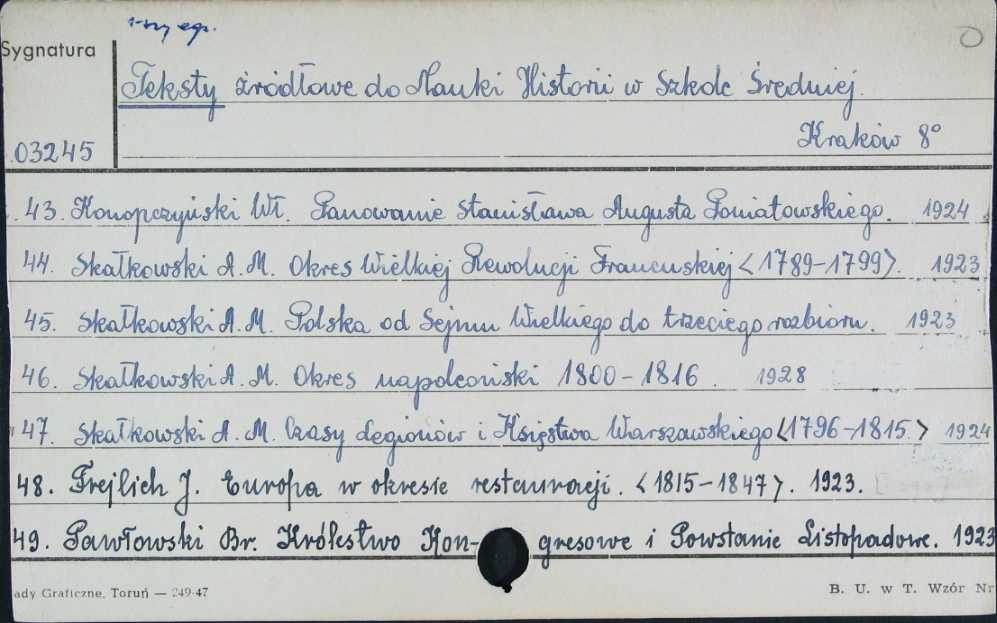 1-szy egz.
Sygnatura
Teksty źródłowe do Nauki Historii w Szkole Średniej.
03245
Kraków 8°
43. Konopczyński Wł. Panowanie Stanisława Augusta Poniatowskiego. 1924
44. Skałkowski A. M. Okres Wielkiej Rewolucji Francuskiej <1789-1799>. 1923
45. Skałkowski A. M. Polska od Sejmu Wielkiego do trzeciego rozbioru. 1923
46. Skałkowski A. M. Okres napoleoński 1800-1816. 1928
47. Skałkowski A. M. Czasy Legionów i Księstwa Warszawskiego <1796-1815.> 1924
48. Frejlich J. Europa w okresie restauracji. <1815-1847>. 1923.
49. Pawłowski Br. Królestwo Kon-gresowe i Powstanie Listopadowe. 1923
ady Graficzne, Toruń — 249-47
B. U. w T. Wzór Nr